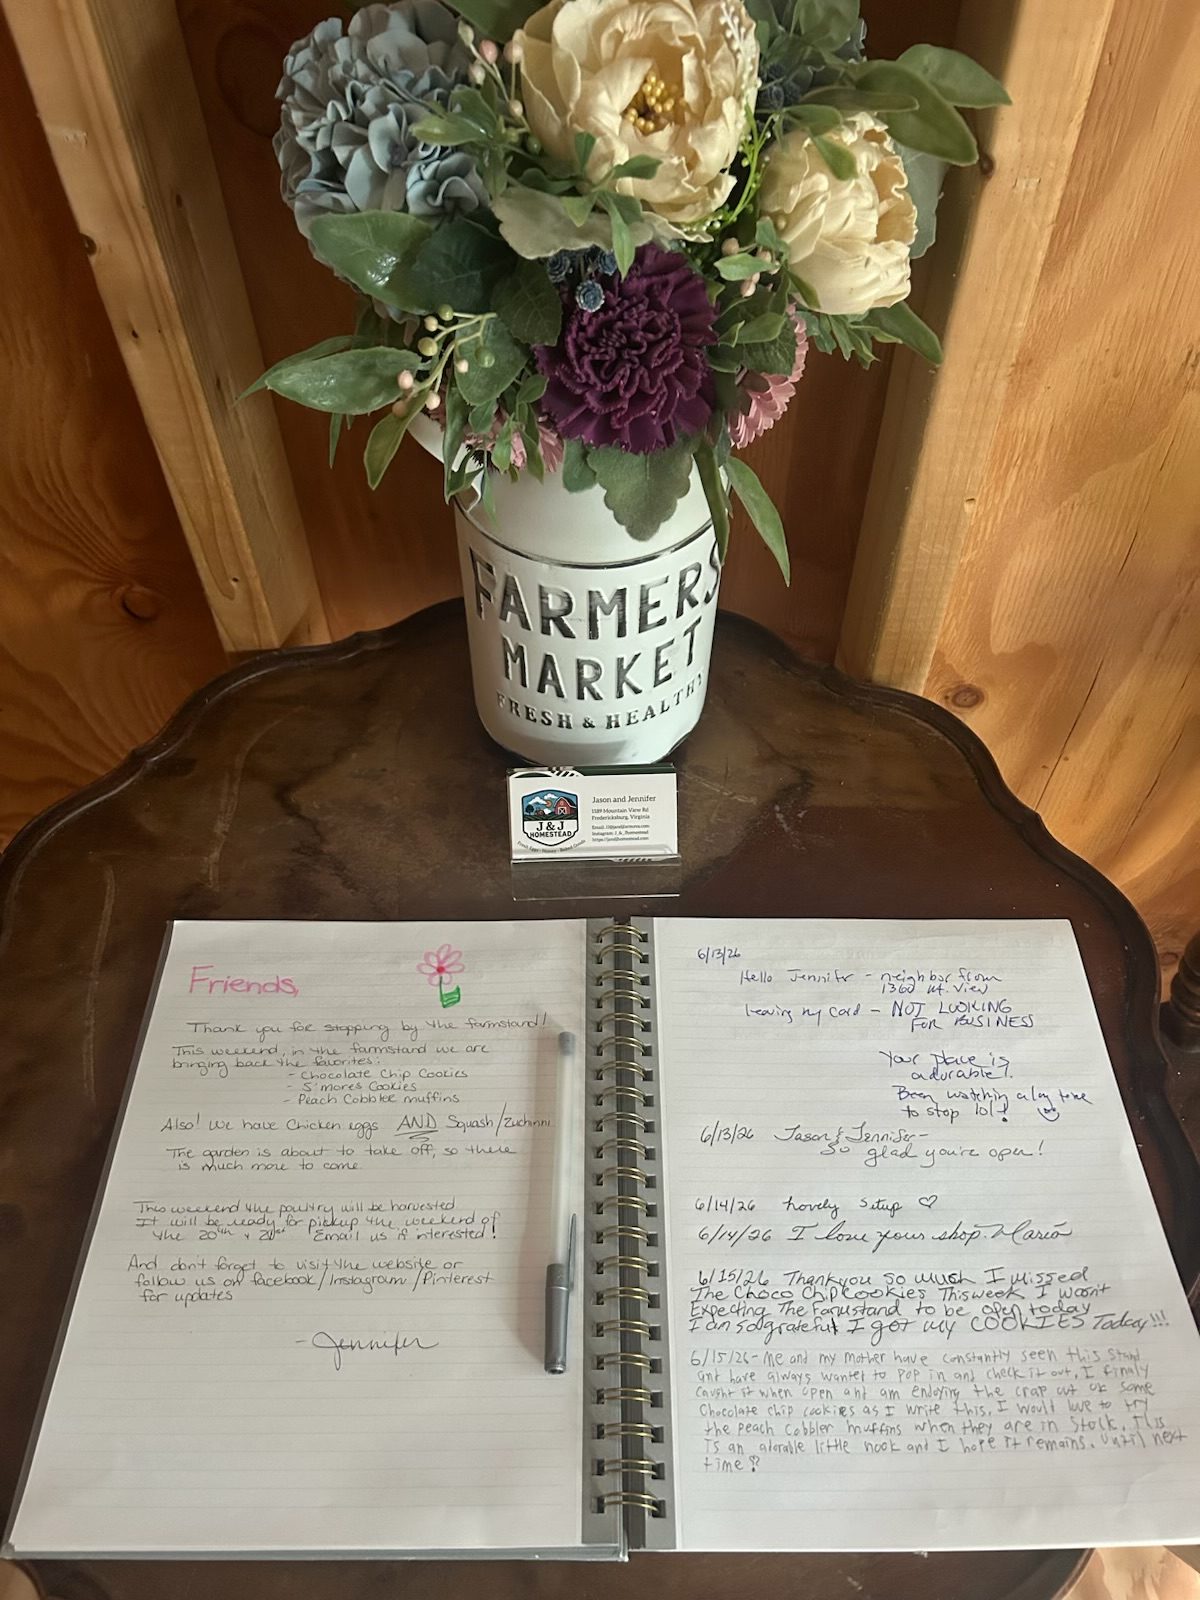 FARMERS
MARKET
FRESH & HEALTHY
J & J
HOMESTEAD
Jason and Jennifer
1589 Mountain View Rd
Fredericksburg, Virginia
Friends,
Thank you for stopping by the farmstand!
This weekend, in the farmstand we are
bringing back the favorites:
- Chocolate Chip Cookies
- S'mores Cookies
- Peach Cobbler muffins
Also! We have Chicken eggs AND Squash/Zuchinni
The garden is about to take off, so there
is much more to come.
This weekend the poultry will be harvested
It will be ready for pickup the weekend of
the 20th + 21st Email us if interested!
And don't forget to visit the website or
follow us on facebook/Instagram/Pinterest
for updates
- Jennifer
6/13/26
Hello Jennifer - neighbor from
1360 Mt. View
leaving my card - NOT LOOKING
FOR BUSINESS
Your place is
adorable!
Been watching a long time
to stop lol!
6/13/26 Jason & Jennifer-
So glad you're open!
6/14/26 Lovely setup ♡
6/14/26 I love your shop. Maria
6/15/26 Thankyou so much I missed
The Choco Chip Cookies This week I wasn't
Expecting The Farmstand to be open today
I am so grateful I got my COOKIES Today!!!
6/15/26 - Me and my mother have constantly seen this stand
and have always wanted to pop in and check it out. I finaly
caught it when open and am enjoying the crap out of some
Chocolate chip cookies as I write this. I would love to try
the peach cobbler muffins when they are in stock. This
is an adorable little nook and I hope it remains. Until next
time!